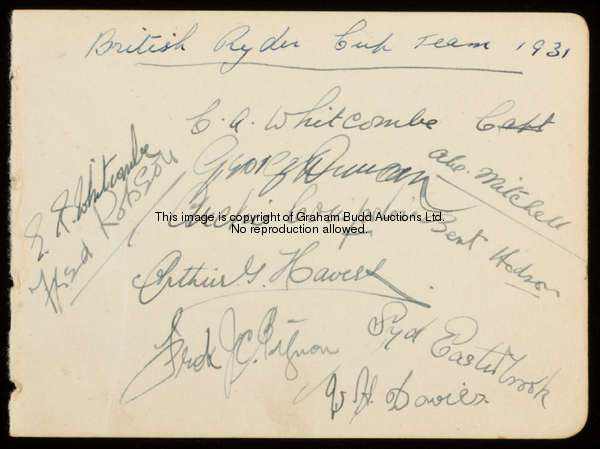 British Ryder Cup Team 1931
C. A. Whitcombe Capt
George Duncan
Abe. Mitchell
E. R. Whitcombe
Fred Robson
Archie Compston
Bert Hodson
This image is copyright of Graham Budd Auctions Ltd.
No reproduction allowed.
Arthur G. Havers
Syd Easterbrook
W. H. Davies